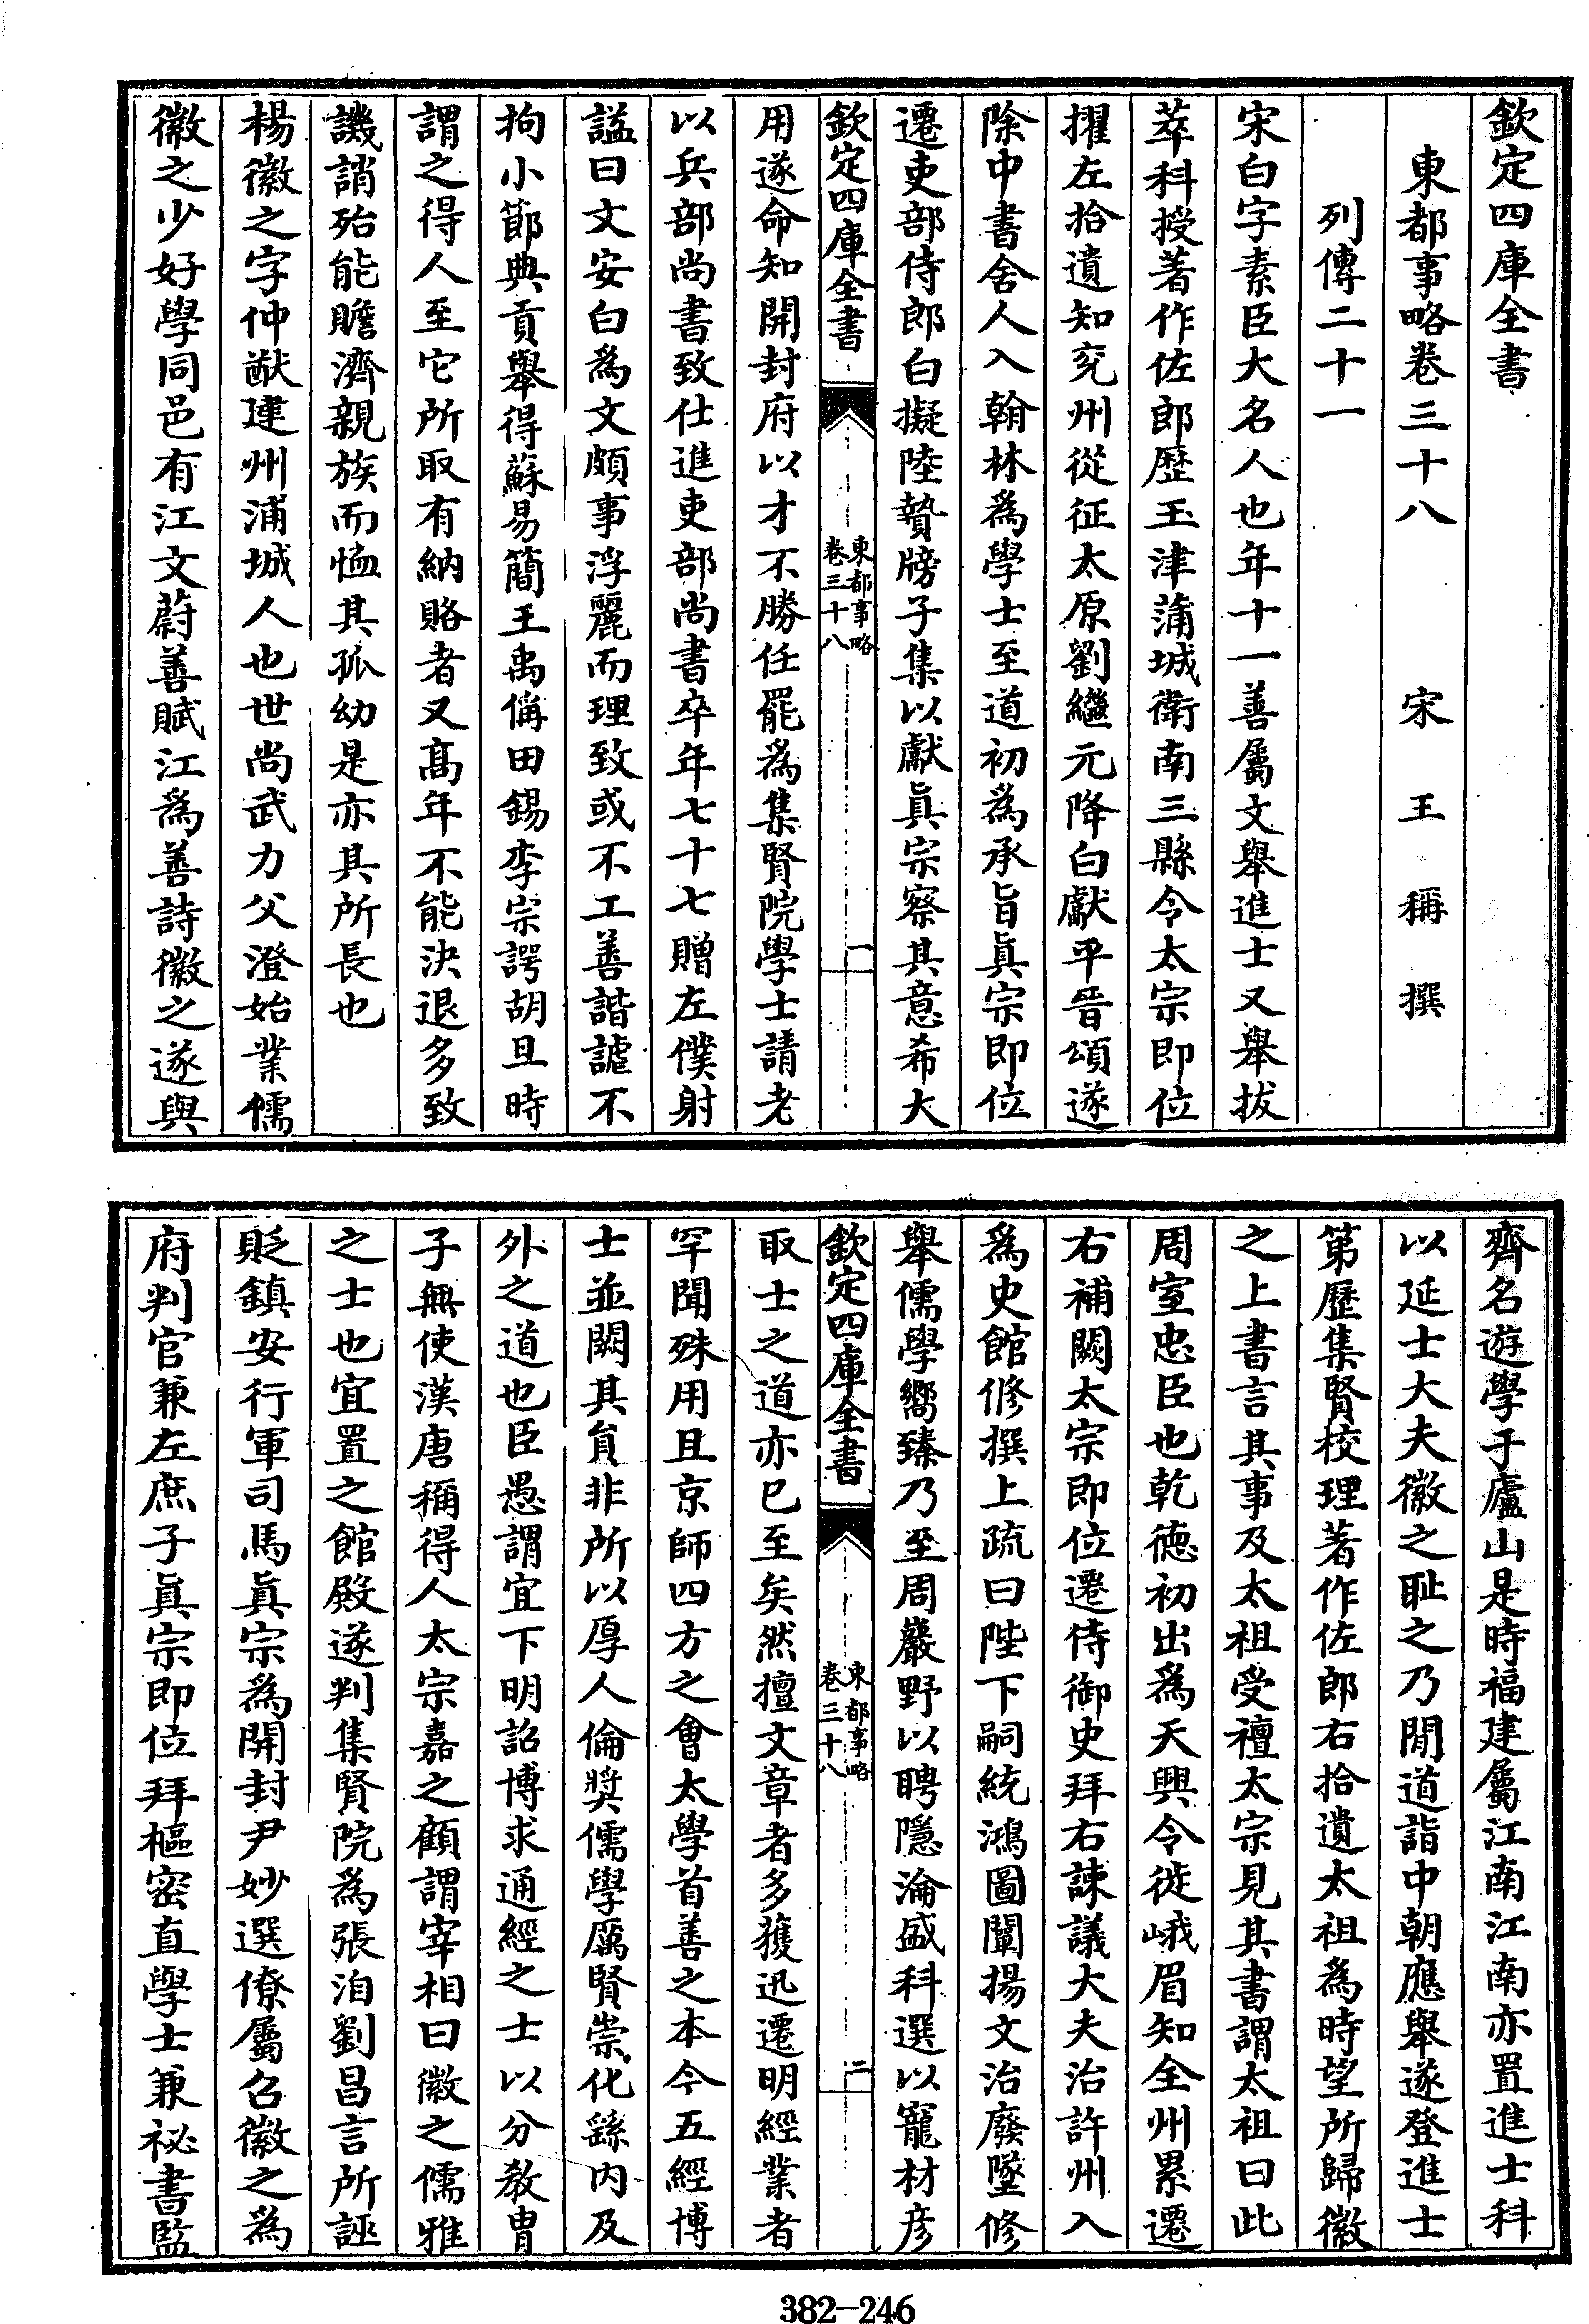 欽定四庫全書
東都事略卷三十八
宋王稱撰
列傳二十一
宋白字素臣大名人也年十一善屬文舉進士又舉拔
萃科授著作佐郎歴玉津蒲城衛南三縣令太宗即位
擢左拾遺知兖州從征太原劉繼元降白獻平晉頌遂
除中書舍人入翰林為學士至道初為承旨眞宗即位
遷吏部侍郎白擬陸贄牓子集以獻眞宗察其意希大
欽定四庫全書
東都事略
卷三十八
一
用遂命知開封府以才不勝任罷為集賢院學士請老
以兵部尚書致仕進吏部尚書卒年七十七贈左僕射
諡曰文安白為文頗事浮麗而理致或不工善諧謔不
拘小節典貢舉得蘇易簡王禹偁田錫李宗諤胡旦時
謂之得人至它所取有納賂者又髙年不能決退多致
譏誚殆能贍濟親族而恤其孤幼是亦其所長也
楊徽之字仲猷建州浦城人也世尚武力父澄始業儒
徽之少好學同邑有江文蔚善賦江為善詩徽之遂與
齊名遊學于廬山是時福建屬江南江南亦置進士科
以延士大夫徽之耻之乃閒道詣中朝應舉遂登進士
第歷集賢校理著作佐郎右拾遺太祖為時望所歸徽
之上書言其事及太祖受禪太宗見其書謂太祖曰此
周室忠臣也乾德初出為天興令徙峨眉知全州累遷
右補闕太宗即位遷侍御史拜右諫議大夫治許州入
為史館修撰上疏曰陛下嗣統鴻圖闡揚文治廢墜修
舉儒學嚮臻乃至周巖野以聘隱淪盛科選以寵材彦
欽定四庫全書
東都事略
卷三十八
二
取士之道亦已至矣然擅文章者多獲迅遷明經業者
罕聞殊用且京師四方之會太學首善之本今五經博
士並闕其員非所以厚人倫奬儒學厲賢崇化繇内及
外之道也臣愚謂宜下明詔博求通經之士以分教胄
子無使漢唐稱得人太宗嘉之顧謂宰相曰徽之儒雅
之士也宜置之館殿遂判集賢院為張洎劉昌言所誣
貶鎮安行軍司馬眞宗為開封尹妙選僚屬召徽之為
府判官兼左庶子眞宗即位拜樞密直學士兼祕書監
382-246